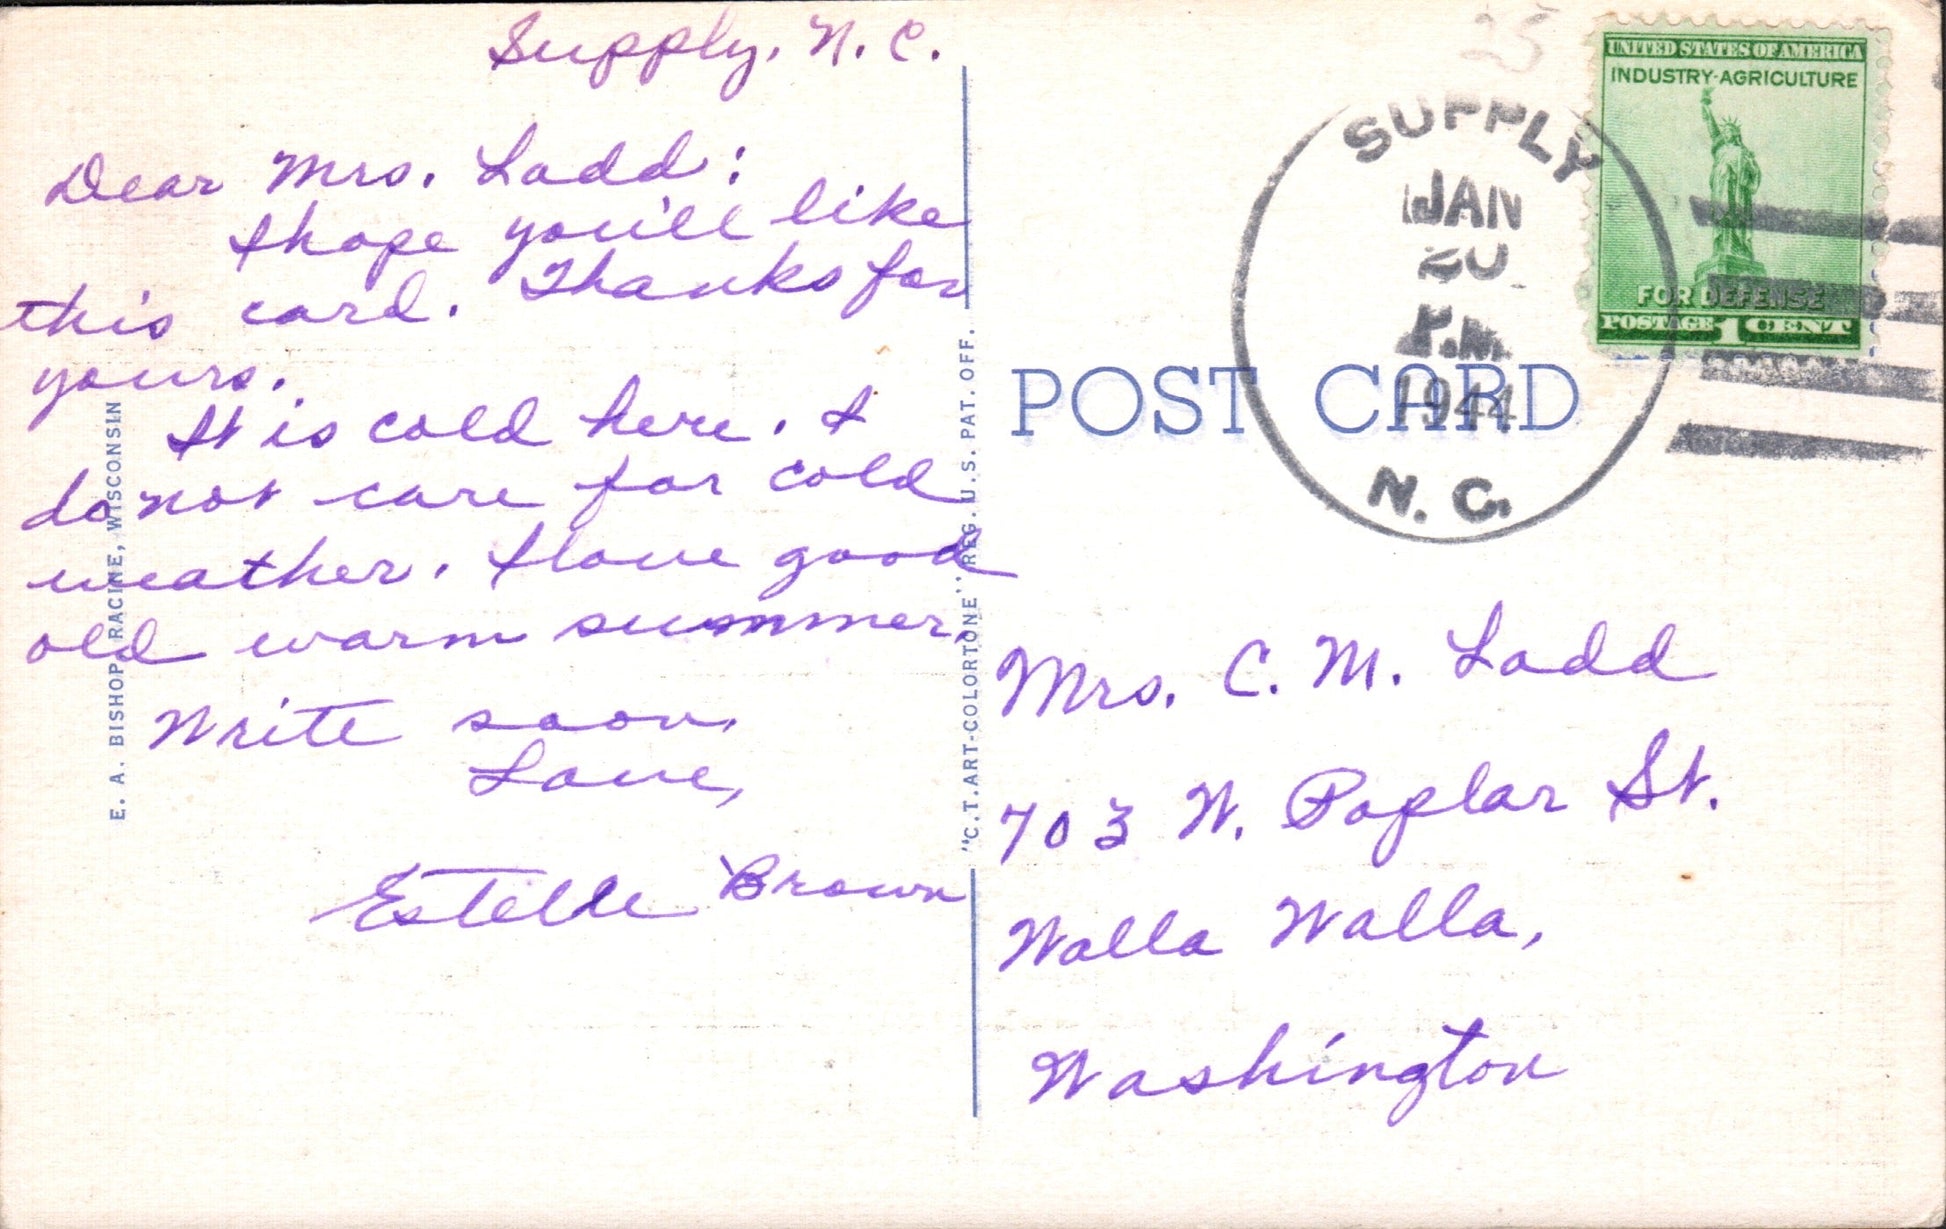 Supply, N. C.
Dear Mrs. Ladd:
I hope you'll like
this card. Thanks for
yours.
It is cold here. I
do not care for cold
weather. I love good
old warm summer.
Write soon,
Love,
Estelle Brown
E. A. BISHOP, RACINE, WISCONSIN
"C.T. ART-COLORTONE" REG. U.S. PAT. OFF.
25
SUPPLY
JAN
20
P.M.
1944
N. C.
UNITED STATES OF AMERICA
INDUSTRY-AGRICULTURE
FOR DEFENSE
POSTAGE 1 CENT
POST CARD
Mrs. C. M. Ladd
703 W. Poplar St.
Walla Walla,
Washington